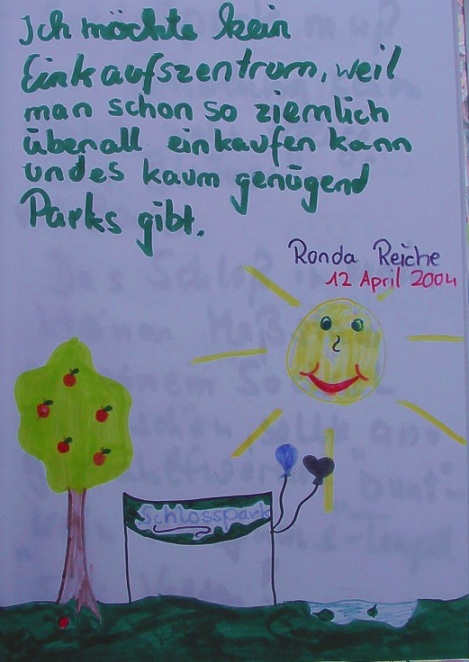 Ich möchte kein
Einkaufszentrum, weil
man schon so ziemlich
überall einkaufen kann
und es kaum genügend
Parks gibt.
Ronda Reiche
12 April 2004
Schlosspark